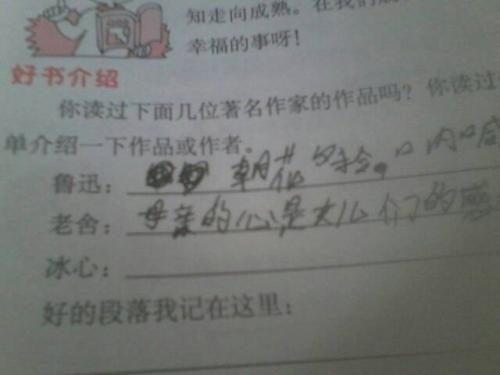 知走向成熟。在我们成
幸福的事呀!
好书介绍
你读过下面几位著名作家的作品吗?你读过
单介绍一下作品或作者。
鲁迅: 朝花夕拾。口内口
老舍: 母亲的心是大儿们的
冰心:
好的段落我记在这里: